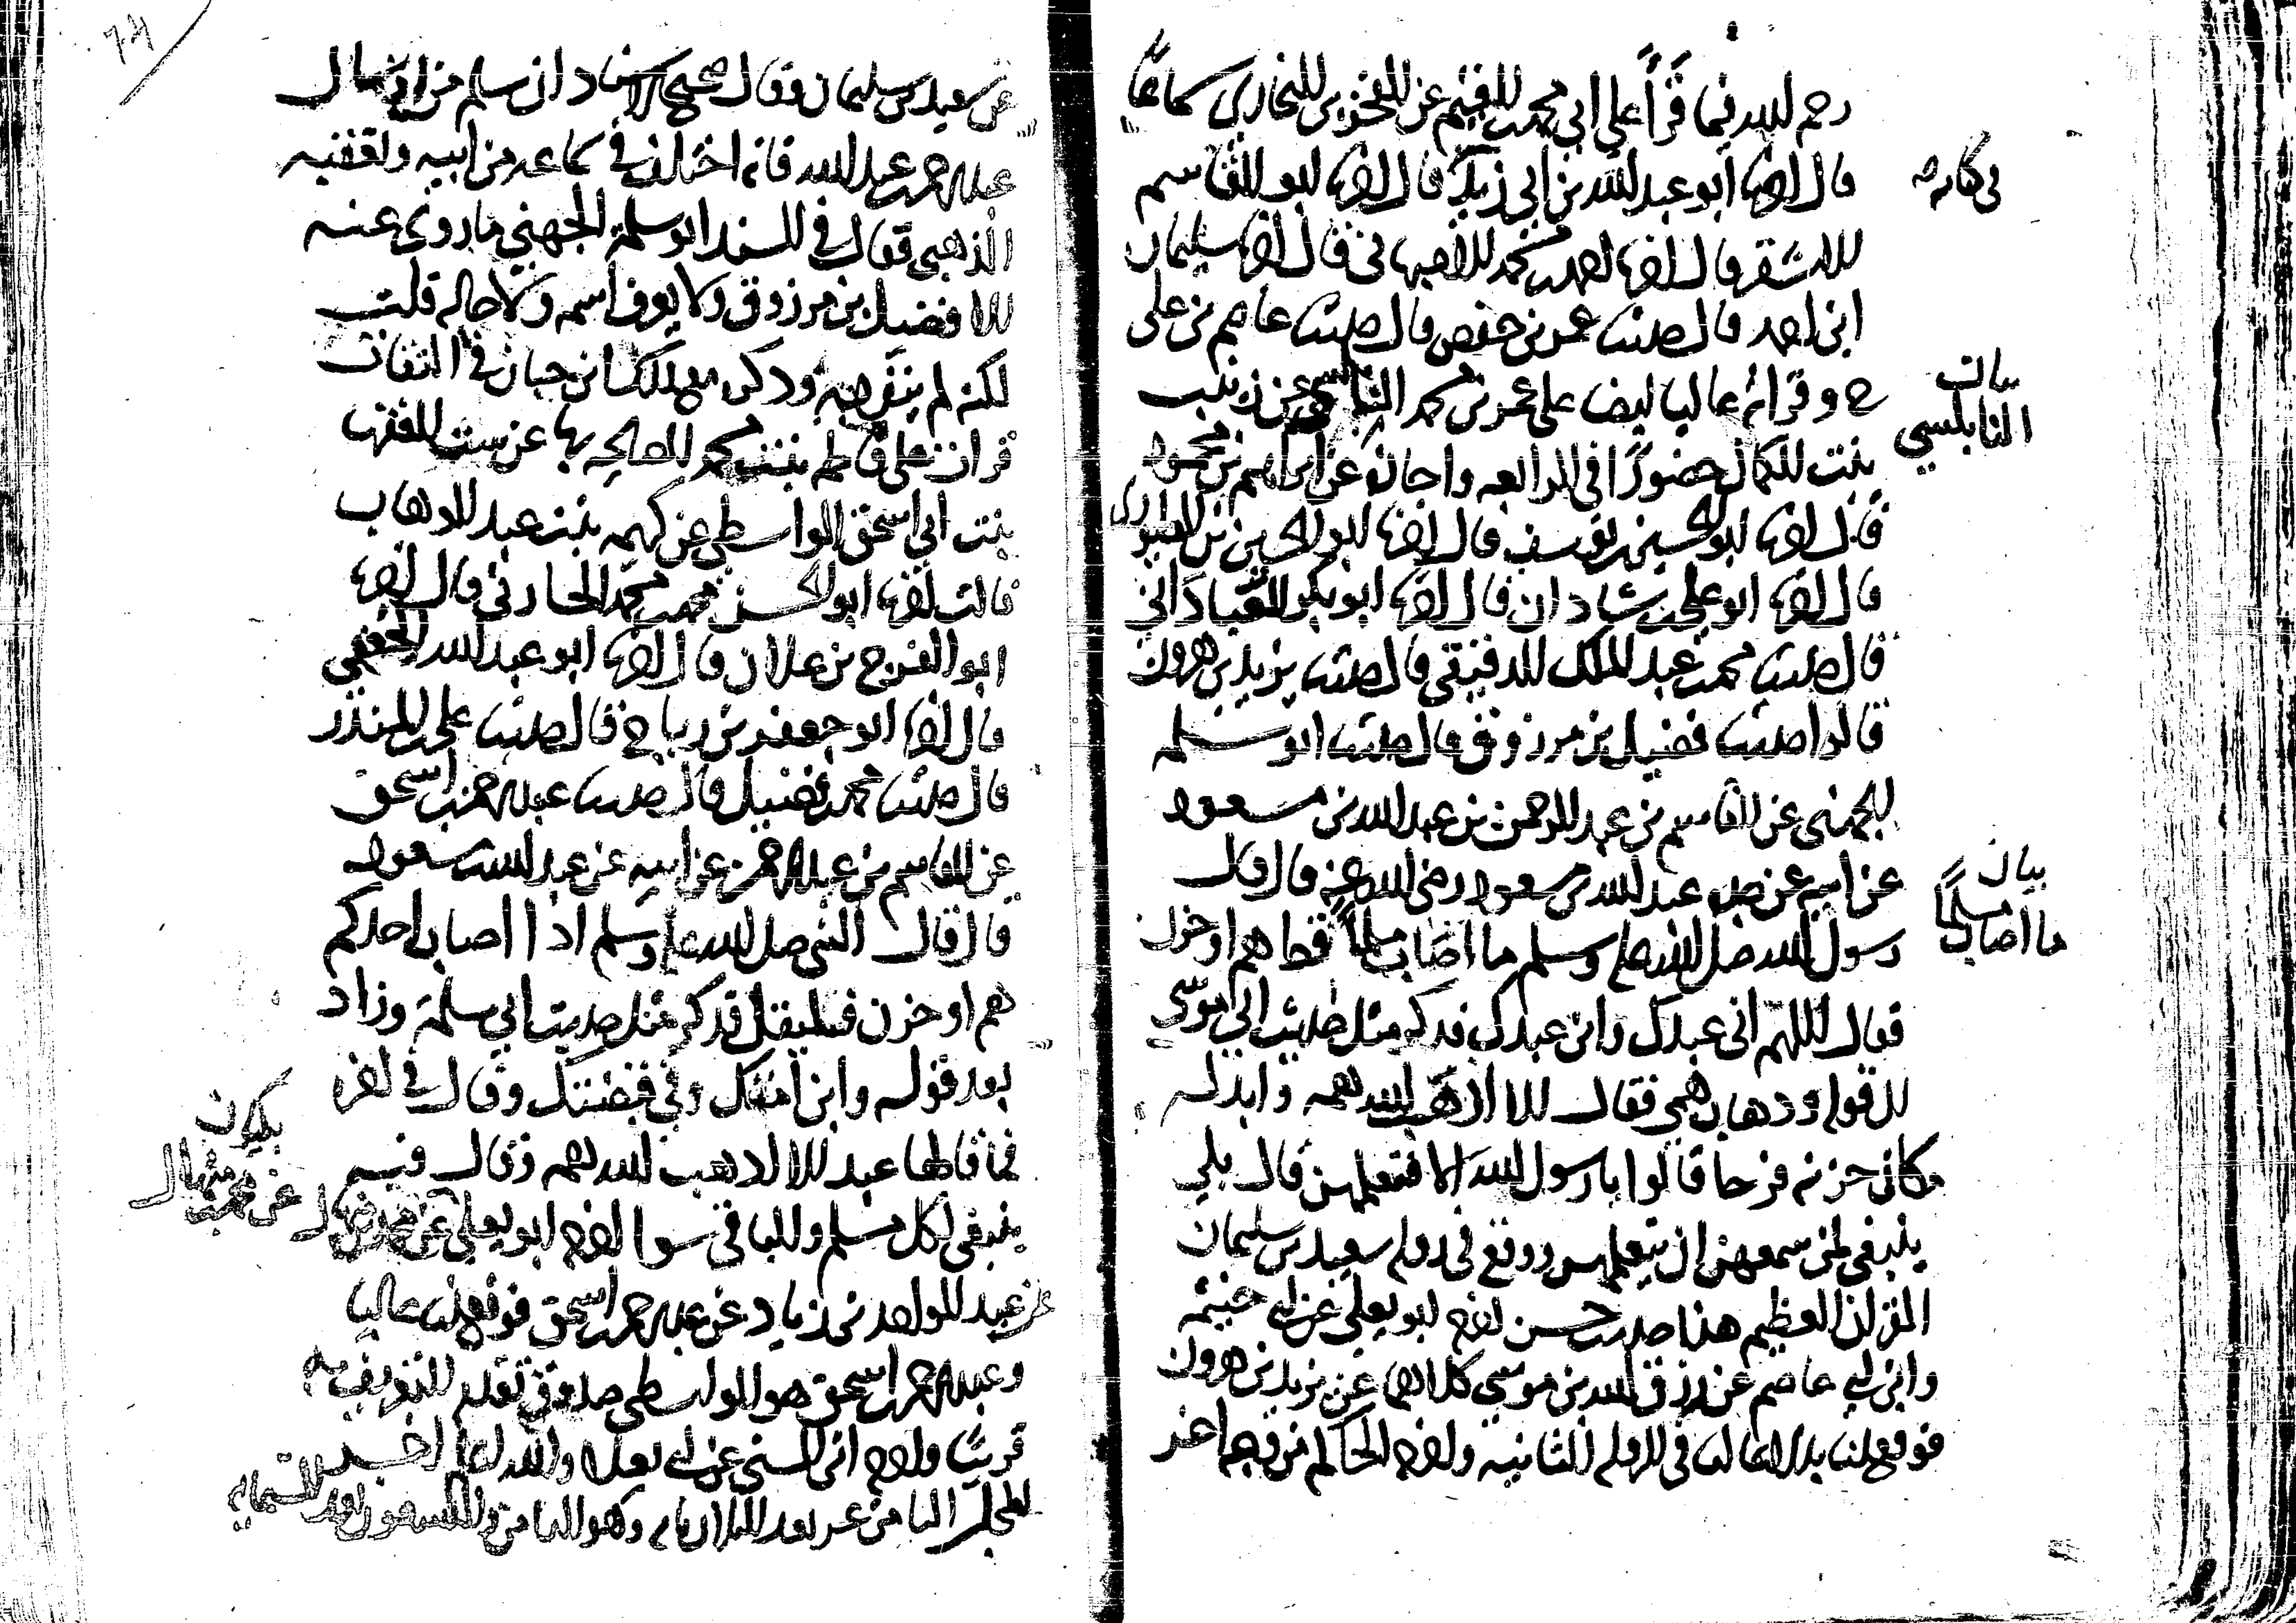 رحمه الله فيما قرأ على ابي محمد القيم عن الفخر بن البخاري سماعا
قال اخبرنا ابو عبد الله بن ابي زيد قال اخبرنا ابو القاسم
في كتابه
الاشقر قال اخبرنا احمد بن محمد الاصبهاني قال اخبرنا سليمان
ابن احمد قال حدثنا عمر بن حفص قال حدثنا عاصم بن علي
ح وقراته عاليا ايضا على عمر بن محمد النابلسي عن زينب
بيان
النابلسي
بنت الكمال حضورا في الرابعه واجازة عن ابراهيم بن محمود
قال اخبرنا ابو الحسين بن يوسف قال اخبرنا ابو الحسين بن
قال اخبرنا ابو علي بن شاذان قال اخبرنا ابو بكر العباداني
قال حدثنا محمد بن عبد الملك الدقيقي قال حدثنا يزيد بن هرون
قالوا حدثنا فضيل بن مرزوق قال حدثنا ابو سلمه
الجهني عن القاسم بن عبد الرحمن بن عبد الله بن مسعود
عن ابيه عن جده عبد الله بن مسعود رضي الله عنه قال قال
بيان
ما اصاب مسلما
رسول الله صلى الله عليه وسلم ما اصاب مسلما قط هم او حزن
فقال اللهم اني عبدك وابن عبدك فذكر مثل حديث ابي موسى
الى قوله وذهاب همي فقال الا اذهب الله همه وابدله
مكان حزنه فرحا قالوا يا رسول الله الا نتعلمهن قال بلى
ينبغي لمن سمعهن ان يتعلمهن ووقع في رواية سعيد بن سليمان
القران العظيم هذا حديث حسن اخرجه ابو يعلى عن ابي خيثمه
وابن ابي عاصم عن رزق الله بن موسى كلاهما عن يزيد بن هرون
فوقع لنا بدلا عاليا في الرواية الثانيه واخرجه الحاكم من وجه اخر
عن سعيد بن سليمان وقال صحيح الاسناد ان سلم من ارسال
عبد الرحمن بن عبد الله فانه اختلف في سماعه من ابيه وتعقبه
الذهبي فقال في السند ابو سلمة الجهني ما روى عنه
الا فضيل بن مرزوق ولا يعرف اسمه ولا حاله قلت
لكنه لم ينفرد به وذكره مع ذلك ابن حبان في الثقات
قرات على فاطمه بنت محمد الصالحيه بها عن ست الفقهاء
بنت ابي اسحق الواسطي عن كريمه بنت عبد الوهاب
قالت اخبرنا ابو الحسن محمد بن محمد الحارثي قال اخبرنا
ابو الفرج بن علان قال اخبرنا ابو عبد الله الجعفي
قال اخبرنا ابو جعفر بن رباح قال حدثنا علي بن المنذر
قال حدثنا محمد بن فضيل قال حدثنا عبد الرحمن بن اسحق
عن القاسم بن عبد الرحمن عن ابيه عن عبد الله بن مسعود
قال قال النبي صلى الله عليه وسلم اذا اصاب احدكم
هم او حزن فليقل فذكر مثل حديث ابي سلمة وزاد
بعد قوله وابن امتك وفي قبضتك وقال في اخره
فما قالها عبد الا اذهب الله همه وقال فيه
ينبغي لكل مسلم والباقي سوا اخرجه ابو يعلى عن محمد بن منهال
بيان
عن محمد بن منهال
عن عبد الواحد بن زياد عن عبد الرحمن بن اسحق فوقع لنا عاليا
وعبد الرحمن بن اسحق هو الواسطي صدوق تقدم التعريف به
قريبا واخرجه ابن السني عن ابي يعلى والله اعلم اخر
المجلس الثامن عشر بعد الثلاثمايه وهو الثامن والتسعون بعد الستمايه